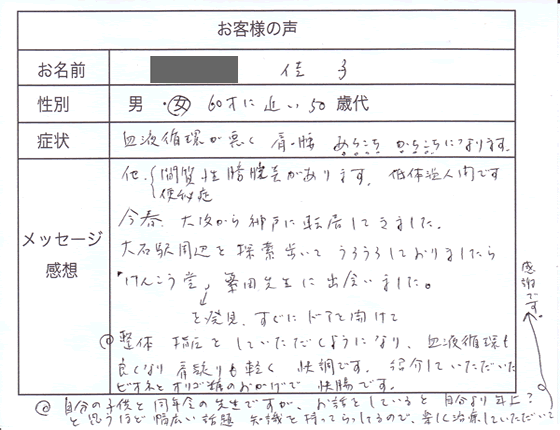 お客様の声
お名前 佳子
性別 男・女 60才に近い50歳代
症状 血液循環が悪く 肩・腰 あちこち かちこちになります。
メッセージ
感想
他.間質性膀胱炎があります. 低体温人間です
便秘症
今春. 大阪から神戸に転居してきました.
大石駅周辺を探索歩いて うろうろしておりましたら
"けんこう堂" 先生に出会いました。
↓
を発見. すぐにドアを開けて
◎整体 指圧をしていただくようになり、血液循環も
良くなり肩凝りも軽く 快調です. 紹介していただいた
ビオネとオリゴ糖のおかげで 快腸です。
◎自分の子供と同年令の先生ですが、お話をしていると 自分より年上?
と思うほど幅広い話題 知識を持ってらっしゃるので、楽しく治療していただいて
感謝です。